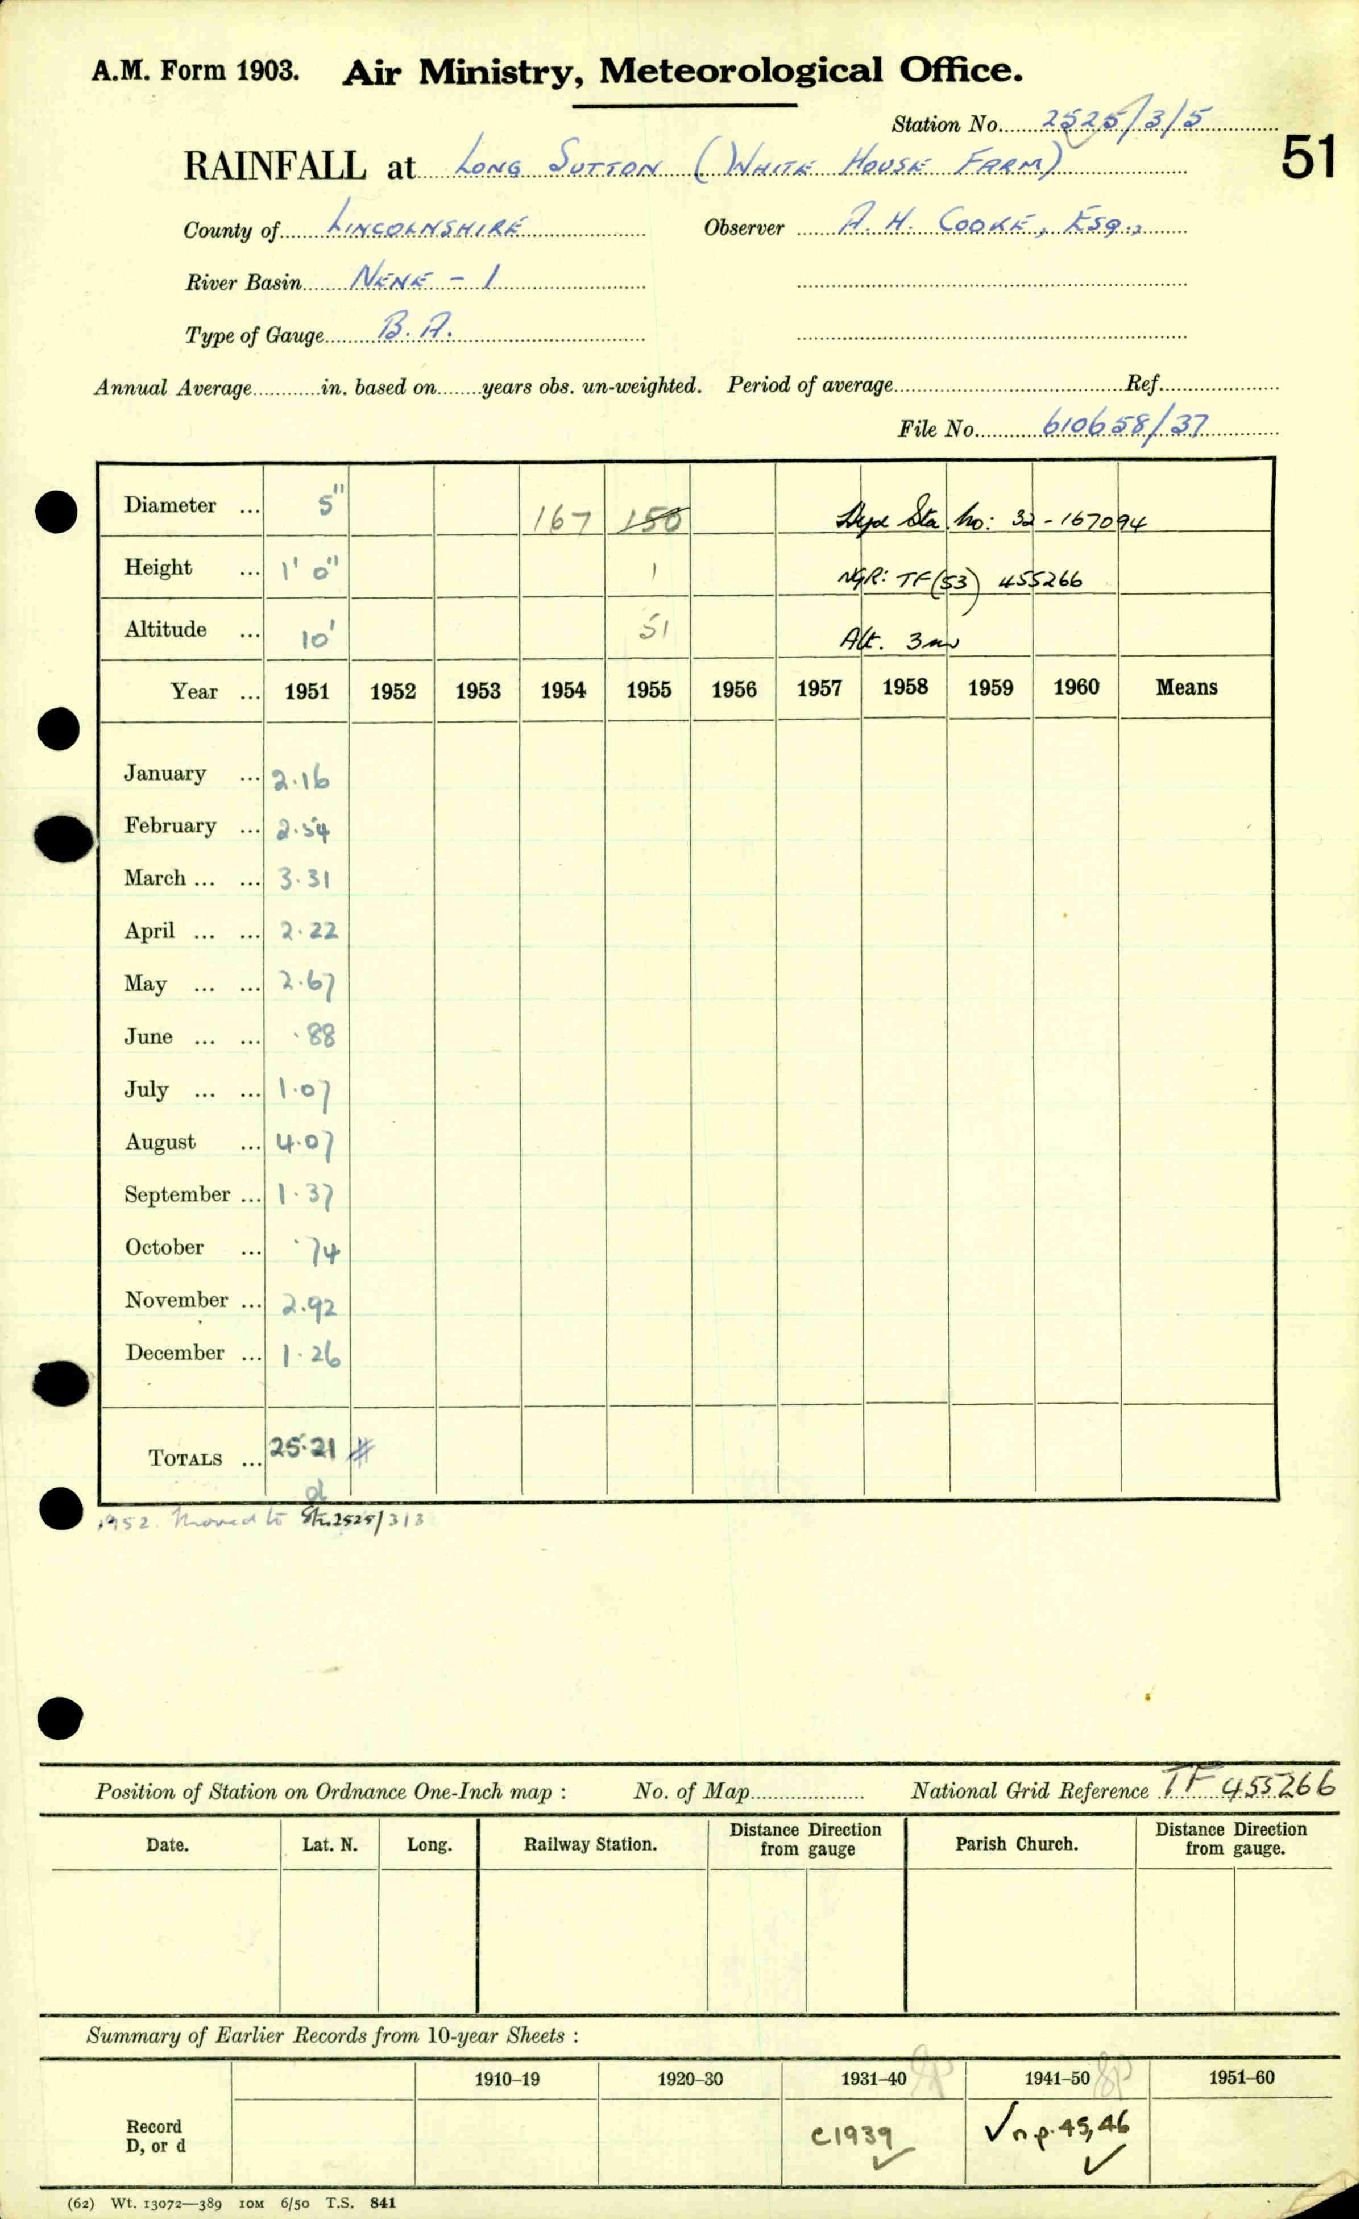 A.M. Form 1903. Air Ministry, Meteorological Office.
Station No. 2525/3/5
51
RAINFALL at LONG SUTTON (WHITE HOUSE FARM)
County of LINCOLNSHIRE Observer A. H. COOKE, ESQ.,
River Basin NENE - 1
Type of Gauge B. A.
Annual Average in. based on years obs. un-weighted. Period of average Ref.
File No. 610658/37
Diameter ... 5" 167 150 Hyd Sta. No: 32 - 167094
Height ... 1' 0" 1 NGR: TF(53) 455266
Altitude ... 10' 51 Alt. 3m
Year ... 1951 1952 1953 1954 1955 1956 1957 1958 1959 1960 Means
January ... 2.16
February ... 2.54
March ... ... 3.31
April ... ... 2.22
May ... ... 2.67
June ... ... .88
July ... ... 1.07
August ... 4.07
September ... 1.37
October ... .74
November ... 2.92
December ... 1.26
TOTALS ... 25.21 #
d
1952. Moved to Stn. 2525/313
Position of Station on Ordnance One-Inch map : No. of Map National Grid Reference TF 455266
Date. Lat. N. Long. Railway Station. Distance Direction from gauge Parish Church. Distance Direction from gauge.
Summary of Earlier Records from 10-year Sheets :
1910–19 1920–30 1931–40 1941–50 1951–60
Record D, or d c1939 ✓ ✓ n p. 45, 46 ✓
(62) Wt. 13072—389 10M 6/50 T.S. 841